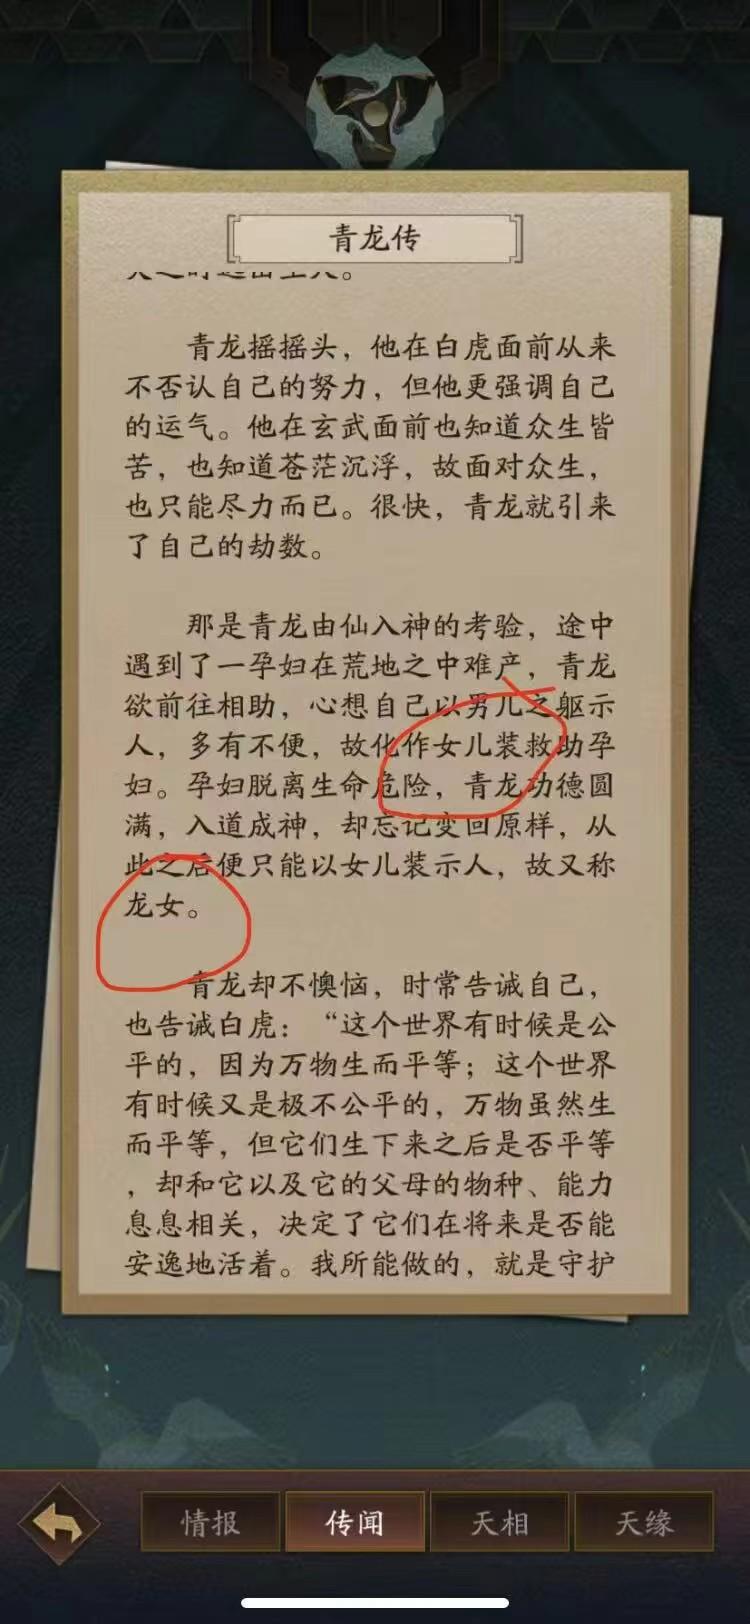 青龙传
青龙摇摇头，他在白虎面前从来
不否认自己的努力，但他更强调自己
的运气。他在玄武面前也知道众生皆
苦，也知道苍茫沉浮，故面对众生，
也只能尽力而已。很快，青龙就引来
了自己的劫数。
那是青龙由仙入神的考验，途中
遇到了一孕妇在荒地之中难产，青龙
欲前往相助，心想自己以男儿之躯示
人，多有不便，故化作女儿装救助孕
妇。孕妇脱离生命危险，青龙功德圆
满，入道成神，却忘记变回原样，从
此之后便只能以女儿装示人，故又称
龙女。
青龙却不懊恼，时常告诫自己，
也告诫白虎：“这个世界有时候是公
平的，因为万物生而平等；这个世界
有时候又是极不公平的，万物虽然生
而平等，但它们生下来之后是否平等
，却和它以及它的父母的物种、能力
息息相关，决定了它们在将来是否能
安逸地活着。我所能做的，就是守护
情报
传闻
天相
天缘